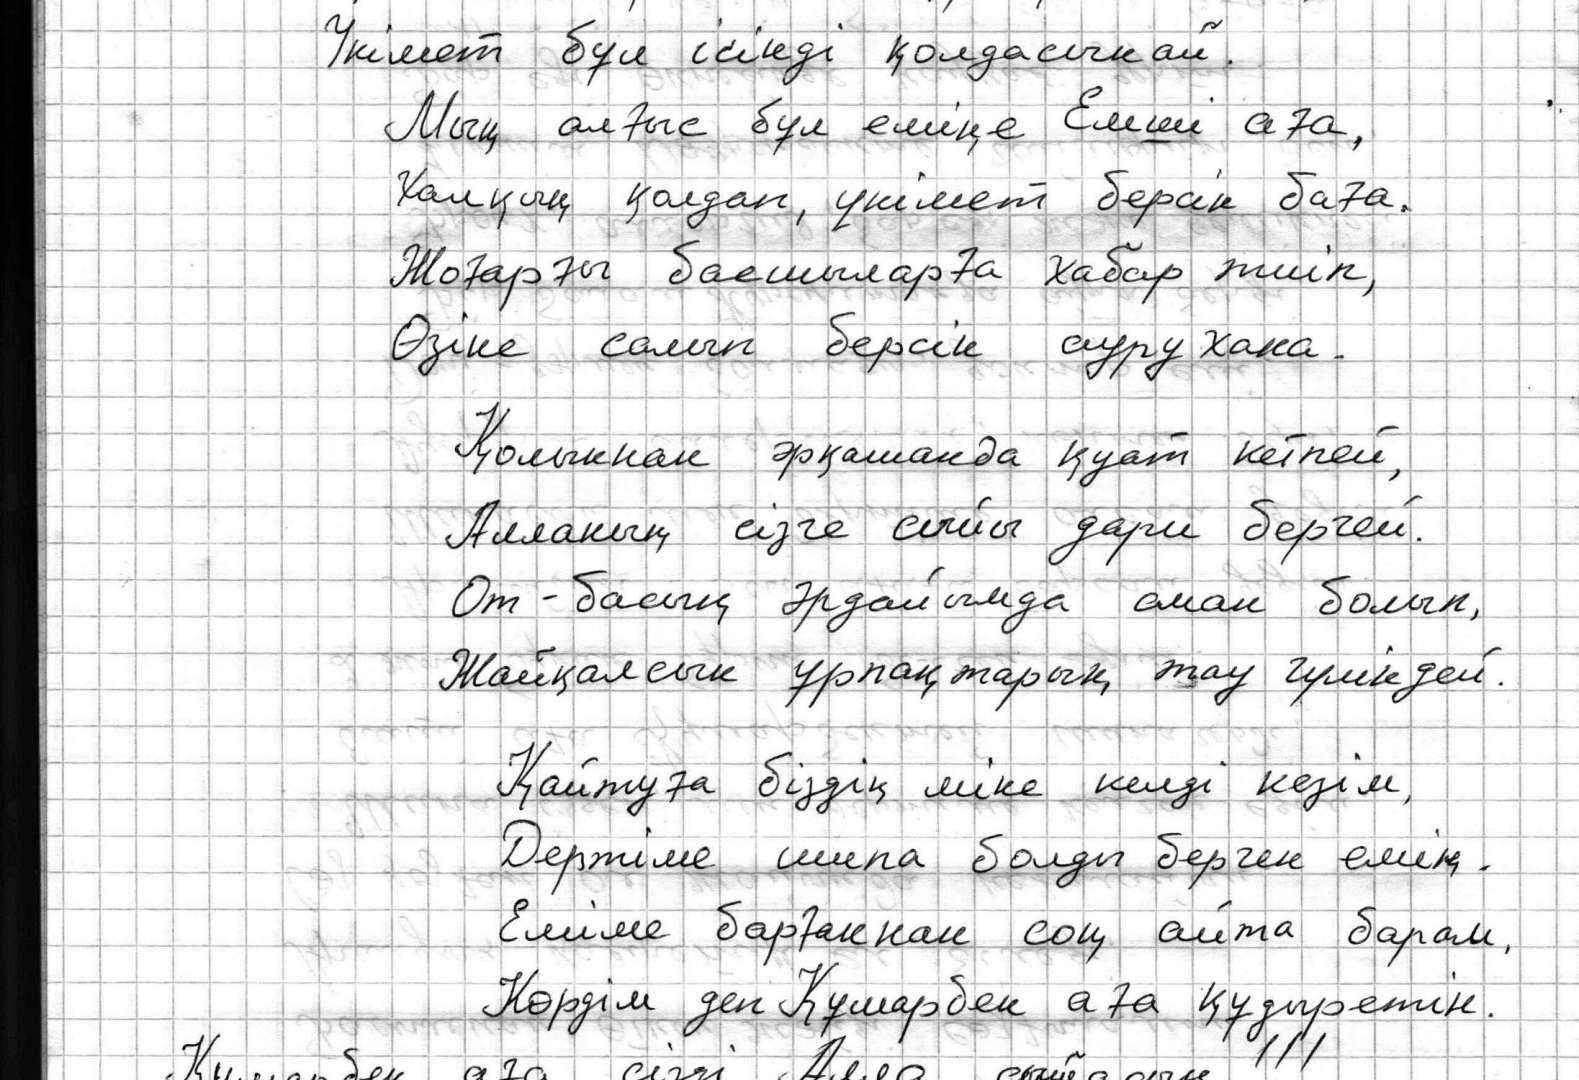 Үкімет бұл ісіңді қолдасынай.
Мың алғыс бұл еміңе Емші аға,
Халқың қолдап, үкімет берсін баға.
Жоғарғы басшыларға хабар тиіп,
Өзіңе салып берсін аурухана.
Қолыңнан әрқашанда қуат кетпей,
Алланың сізге сыйы дари бергей.
От-басың әрдайымда аман болып,
Жайқалсын ұрпақтарың тау гүліндей.
Қайтуға біздің міне келді кезім,
Дертіме шипа болды берген емің.
Еліме барғаннан соң айта барам,
Көрдім деп Құмарбек аға құдыретін.
Құмарбек аға сізді Алла сыйласын !!!